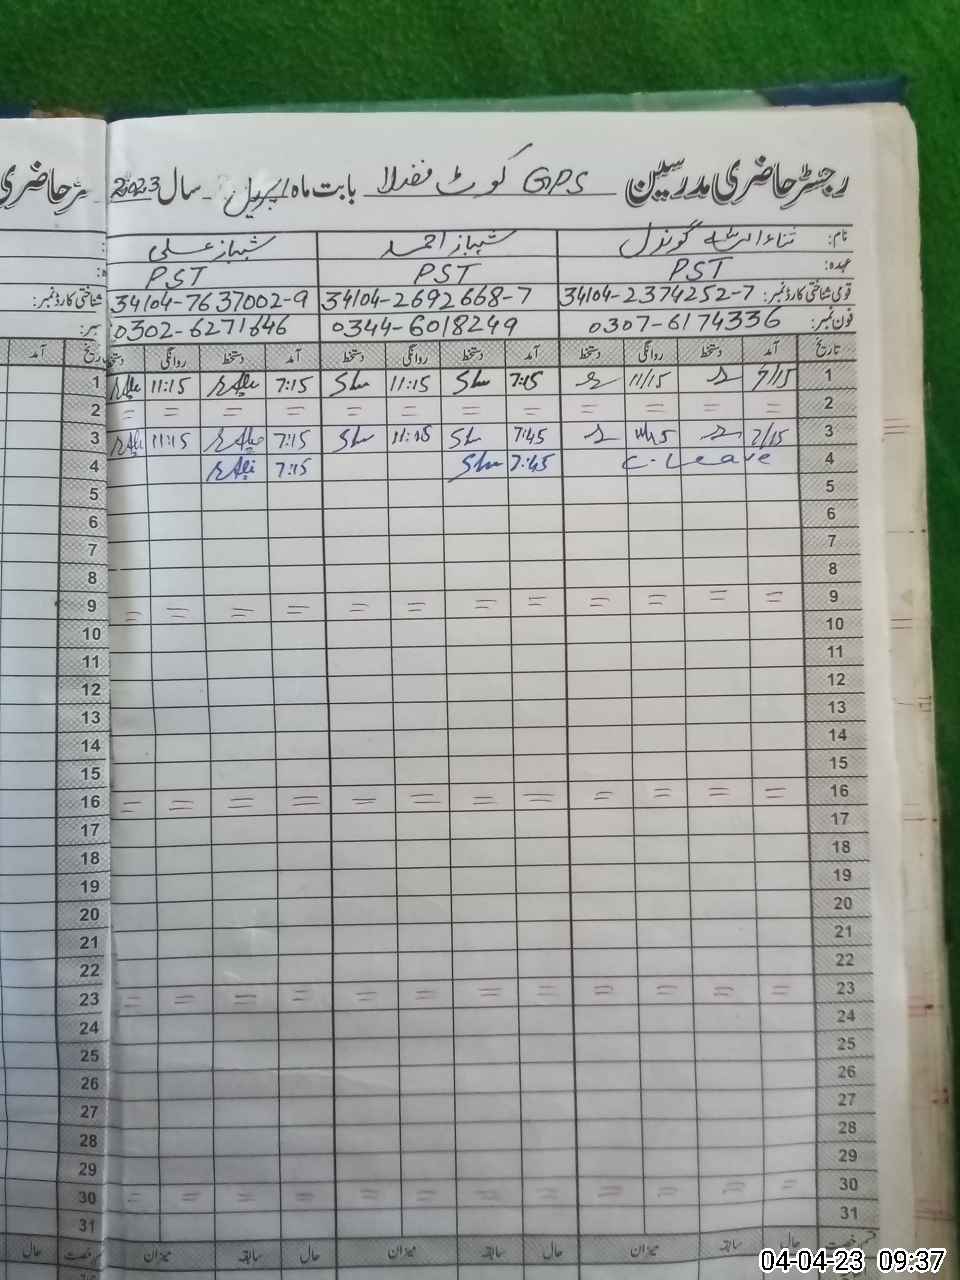 رجسٹر حاضری مدرسین GPS کوٹ فضلا بابت ماہ اپریل سال 2023
نام: ثناء اللہ گوندل شہباز احمد شہباز علی
عہدہ: PST PST PST
قومی شناختی کارڈ نمبر: 34104-2374252-7 34104-2692668-7 34104-7637002-9 شناختی کارڈ نمبر:
فون نمبر: 0307-6174336 0344-6018249 0302-6271646
تاریخ آمد دستخط روانگی دستخط آمد دستخط روانگی دستخط آمد دستخط روانگی دستخط تاریخ آمد
1 7/15 11/15 7:15 Sh 11:15 Sh 7:15 RAli 11:15 RAli 1
2 = = = = = = = = = = = = 2
3 7/15 7:45 Sh Sh 7:15 RAli 11:15 RAli 3
4 C. Leave 7:45 Sh 7:15 RAli 4
5 5
6 6
7 7
8 8
9 = = = = = = = = = = = = 9
10 10
11 11
12 12
13 13
14 14
15 15
16 = = = = = = = = = = = = 16
17 17
18 18
19 19
20 20
21 21
22 22
23 = = = = = = = = = = = = 23
24 24
25 25
26 26
27 27
28 28
29 29
30 = = = = = = = = = = = = 30
31 31
حال سابقہ میزان حال سابقہ میزان حال سابقہ میزان حال
04-04-23 09:37